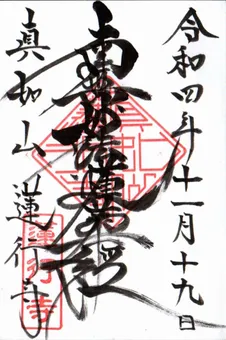 令和四年十一月十九日
南無妙法蓮華経
真如山 蓮行寺
蓮行寺